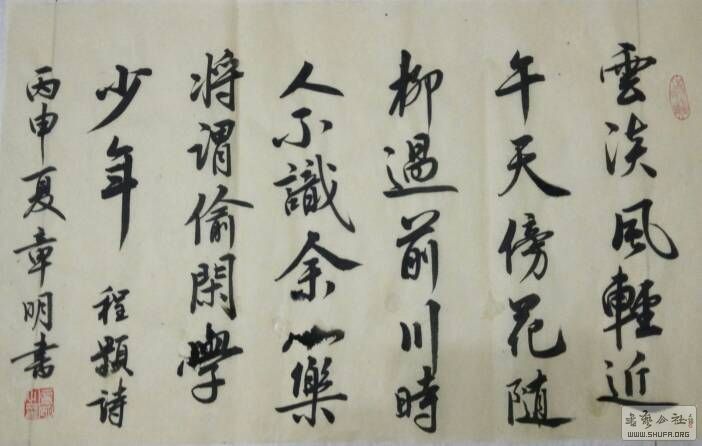 雲淡風輕近
午天傍花随
柳過前川時
人不識余心樂
将謂偷閑學
少年
程顥詩
丙申夏章明書
書藝公社
WWW.SHUFA.ORG